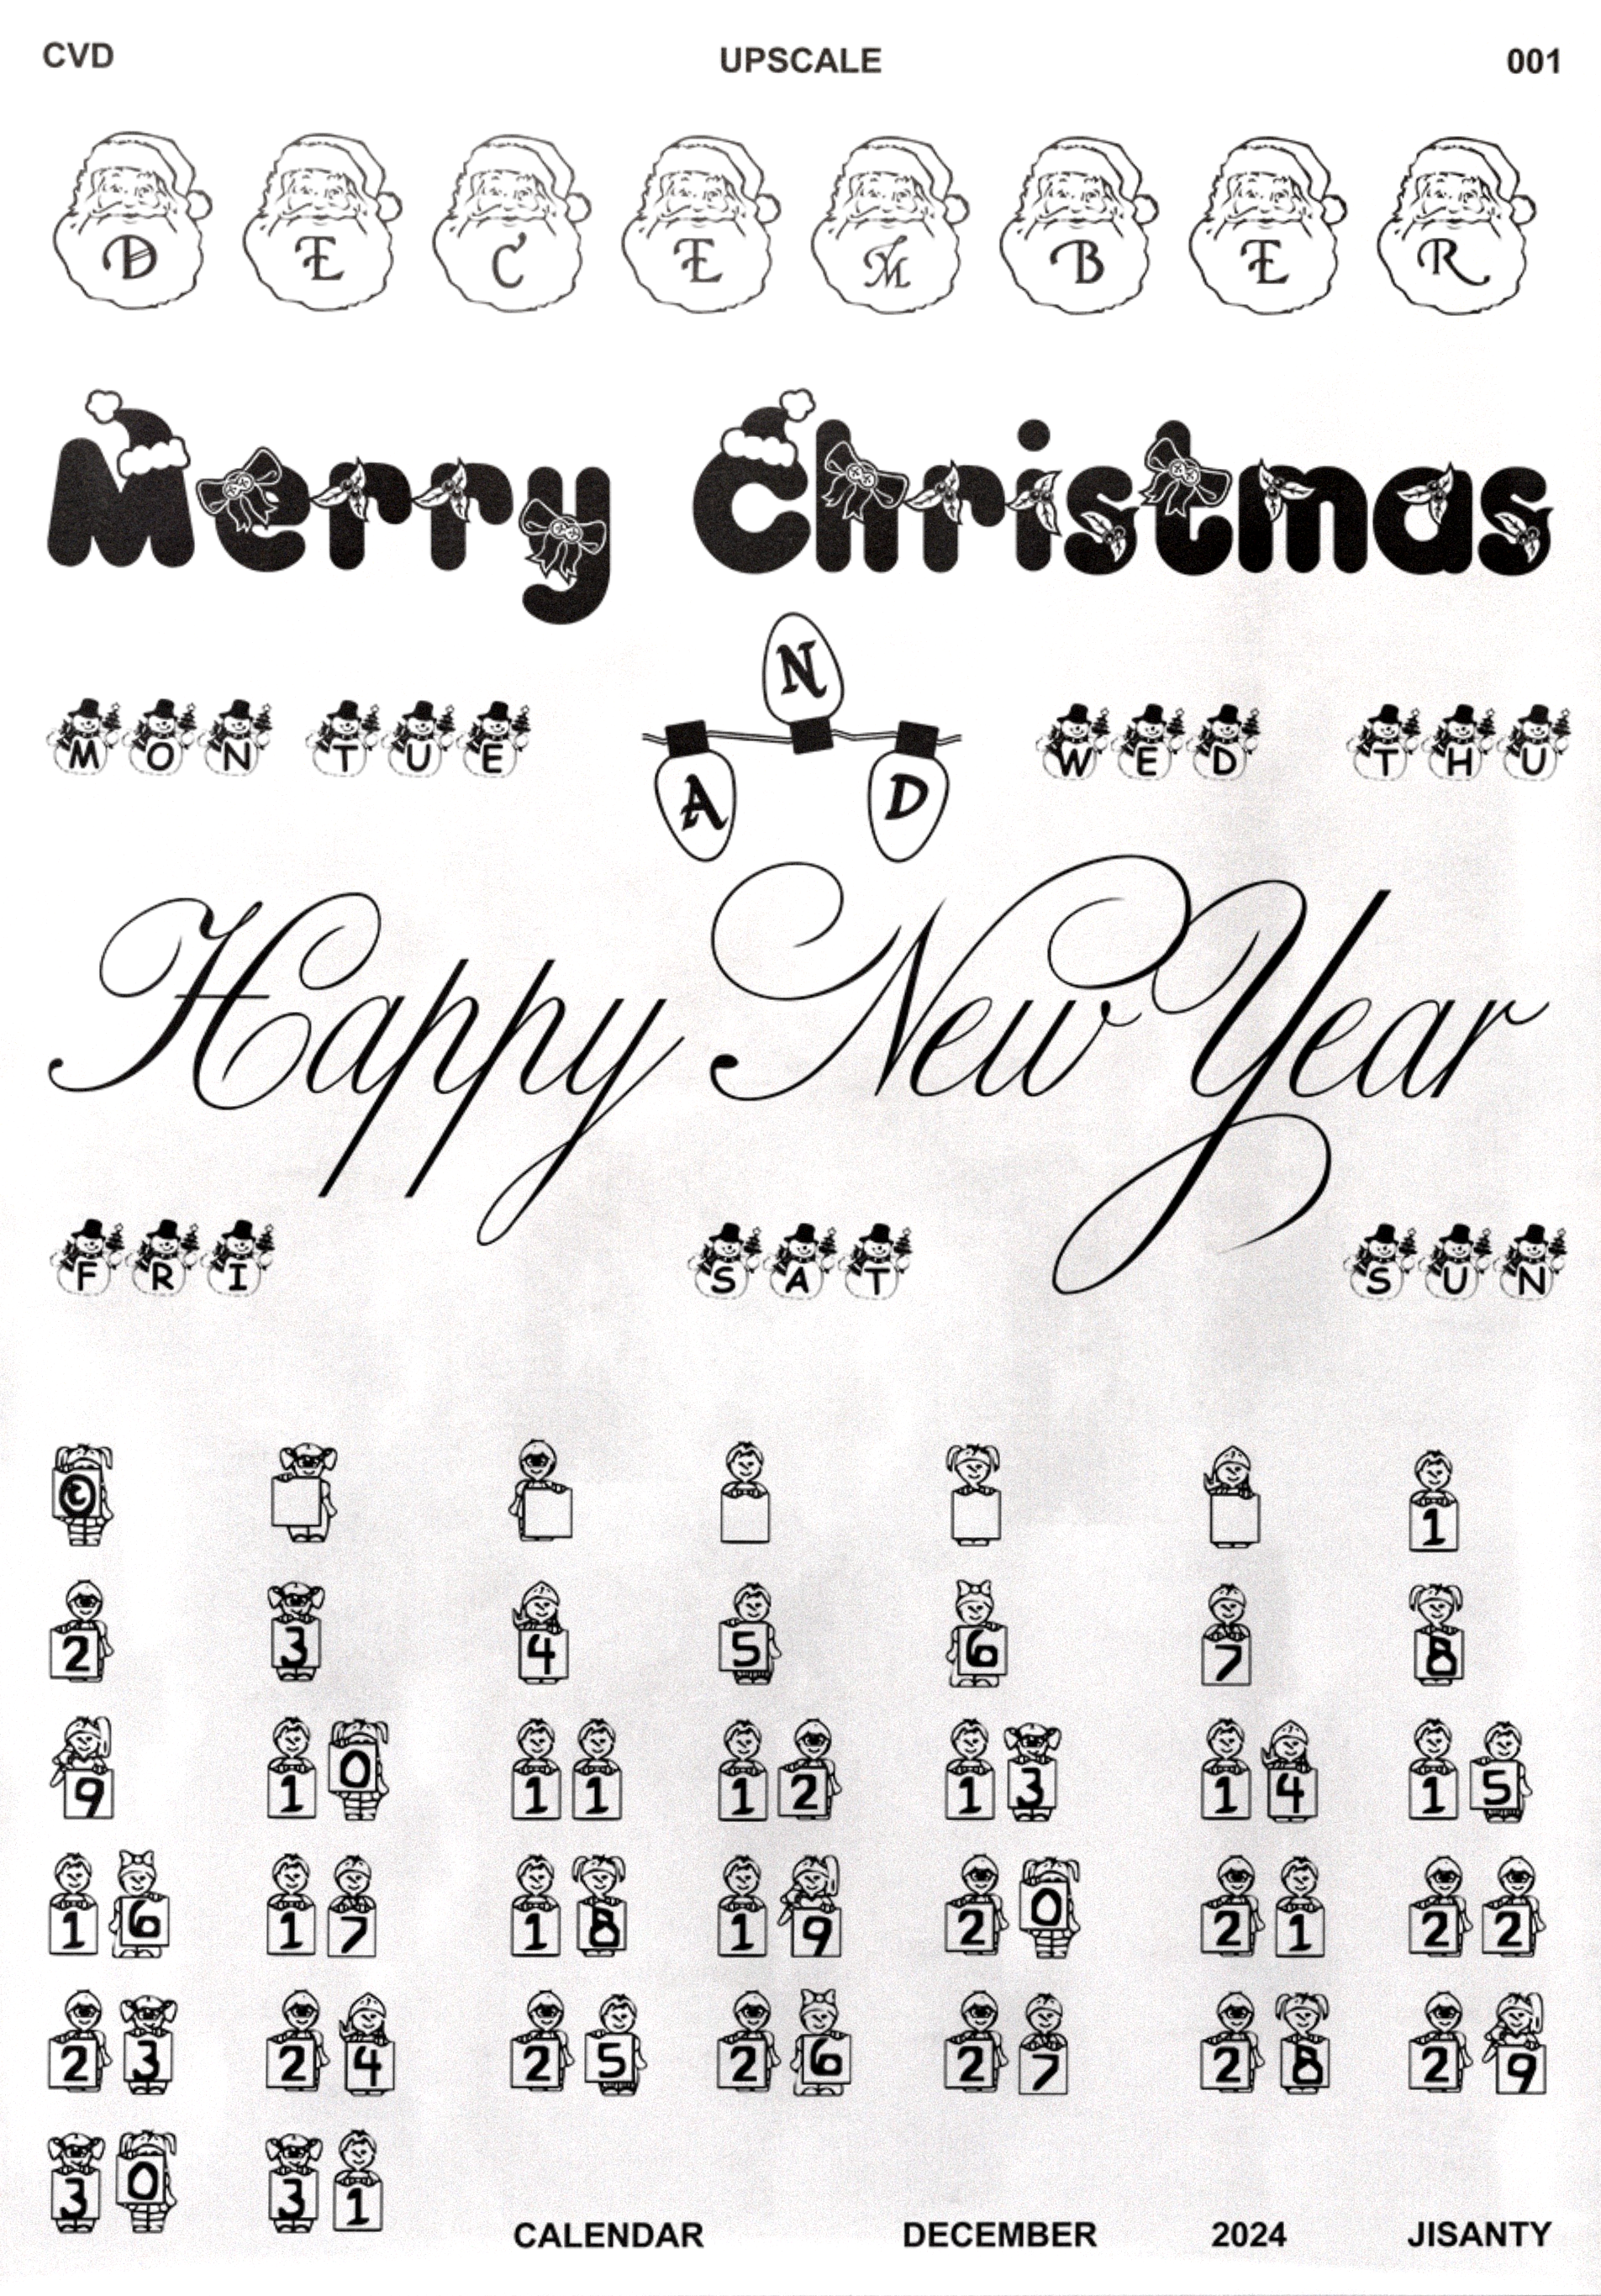 CVD UPSCALE 001
DECEMBER
Merry Christmas
MON TUE AND WED THU
Happy New Year
FRI SAT SUN
1
2 3 4 5 6 7 8
9 10 11 12 13 14 15
16 17 18 19 20 21 22
23 24 25 26 27 28 29
30 31
CALENDAR DECEMBER 2024 JISANTY